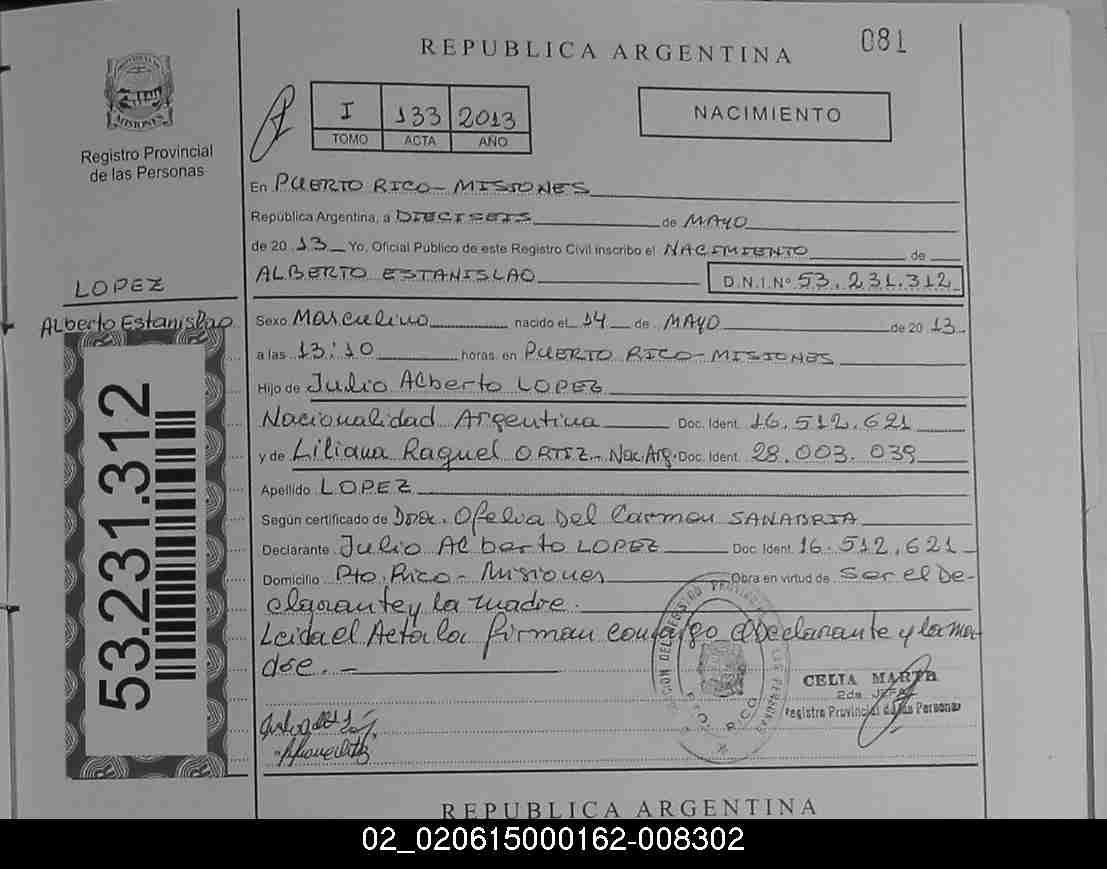 REPUBLICA ARGENTINA
081
MISIONES
Registro Provincial
de las Personas
I 133 2013
TOMO ACTA AÑO
NACIMIENTO
En PUERTO RICO - MISIONES
República Argentina, a DIECISEIS de MAYO
de 20 13 Yo, Oficial Público de este Registro Civil inscribo el NACIMIENTO de
ALBERTO ESTANISLAO D.N.I.Nº 53.231.312
LOPEZ
Alberto Estanislao
53.231.312
Sexo Masculino nacido el 14 de MAYO de 20 13
a las 13:10 horas. en PUERTO RICO - MISIONES
Hijo de Julio Alberto LOPEZ
Nacionalidad Argentina Doc. Ident. 16.512.621
y de Liliana Raquel ORTIZ - Nac. Arg. Doc. Ident. 28.003.039
Apellido LOPEZ
Según certificado de Dra. Ofelia Del Carmen SANABRIA
Declarante Julio Alberto LOPEZ Doc. Ident. 16.512.621
Domicilio Pto. Rico - Misiones Obra en virtud de ser el De-
clarante y la madre.
Leida el Acta la firman conmigo el declarante y la ma-
dre. -
CELIA MARTA
2da JEFA
Registro Provincial de las Personas
REPUBLICA ARGENTINA
02_020615000162-008302